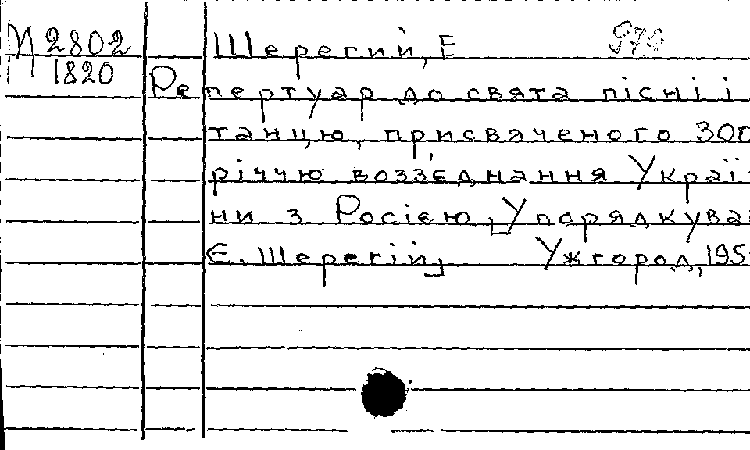 И 2802
1820
Шерегий, Е
Репертуар до свята пісні і
танцю, присвяченого 300
річчю воззєднання Украї
ни з Росією, Упорядкува
Є. Шерегій, Ужгород, 195